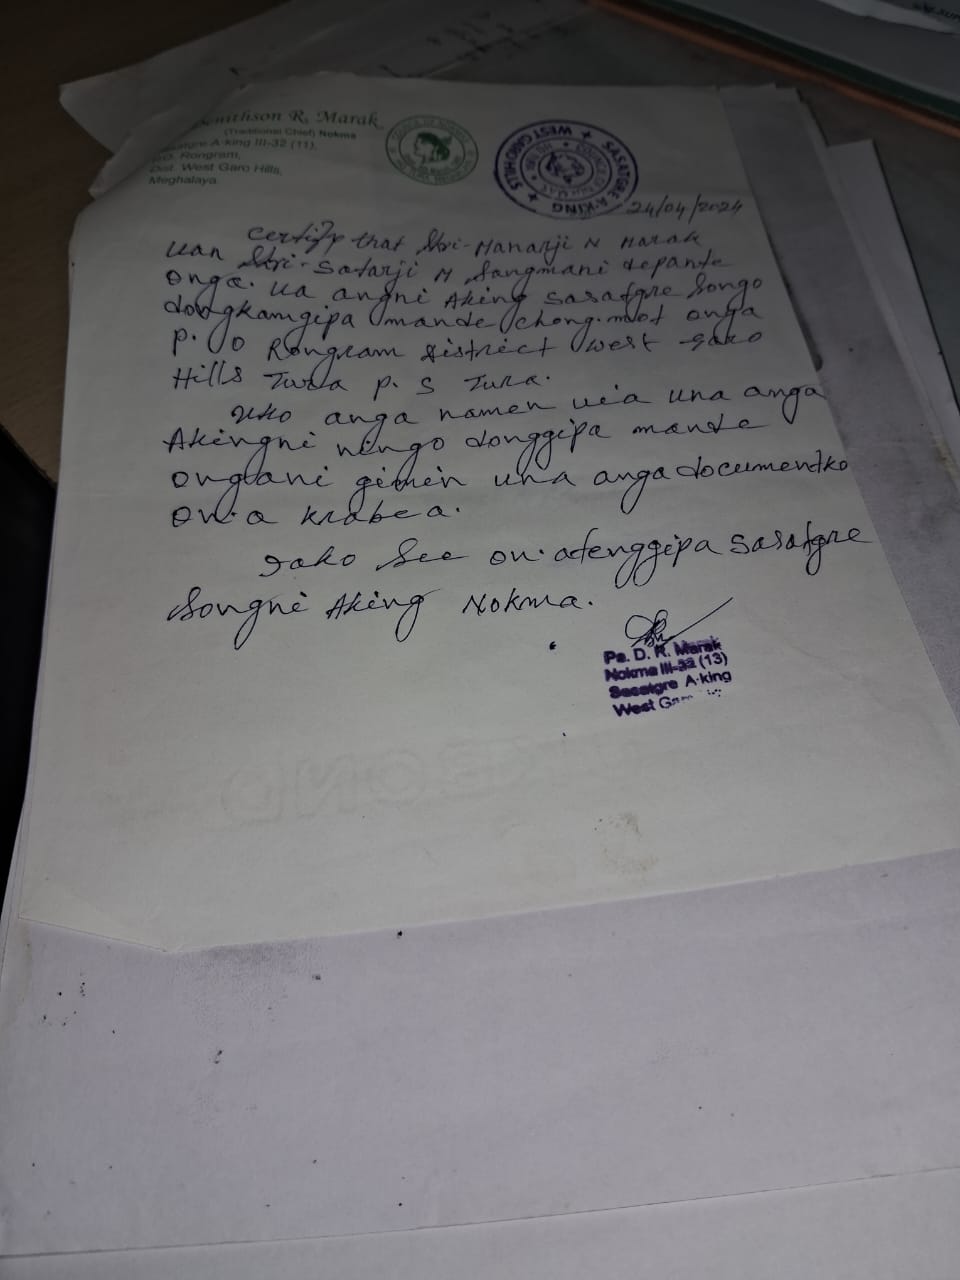 R. Marak
(Traditional Chief) Nokma
A·king III-32 (11),
P.O. Rongram,
Dist. West Garo Hills,
Meghalaya.
SASATGRE A·KING
WEST GARO HILLS
24/04/2024
certify that Shri-Mananji N Marak
uan Shri-Satarji M Sangmani depante
onga. ua angni Aking Sasatgre Songo
dongkamgipa mande chong·mot onga
P. O Rongram district West Garo
Hills Tura P. S Tura.
Uko anga namen uia una anga
Akingni ningo donggipa mande
ongani gimin una anga documentko
on·a krabea.
Iako See on·atenggipa Sasatgre
Songni Aking Nokma.
Pa. D. R. Marak
Nokma III-32 (13)
Sasatgre A·king
West